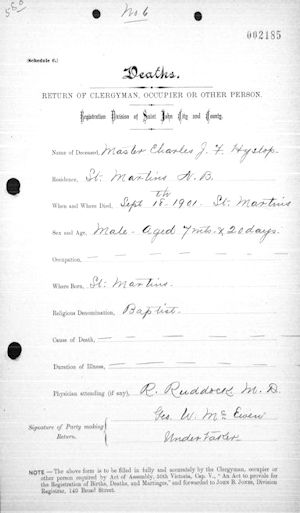 No 6
002185
(Schedule C.)
Deaths.
RETURN OF CLERGYMAN, OCCUPIER OR OTHER PERSON.
Registration Division of Saint John City and County.
Name of Deceased, Master Charles J. F. Hyslop.
Residence, St. Martins N.B.
When and Where Died, Sept 18th 1901 St. Martins
Sex and Age, Male - Aged 7 mts. & 20 days.
Occupation,
Where Born, St. Martins.
Religious Denomination, Baptist.
Cause of Death,
Duration of Illness,
Physician attending (if any), R. Ruddock M.D.
Geo. W. McEwen
Signature of Party making Return. Undertaker
NOTE — The above form is to be filled in fully and accurately by the Clergyman, occupier or
other person required by Act of Assembly, 50th Victoria, Cap. V., "An Act to provide for
the Registration of Births, Deaths, and Marriages," and forwarded to JOHN B. JONES, Division
Registrar, 140 Broad Street.